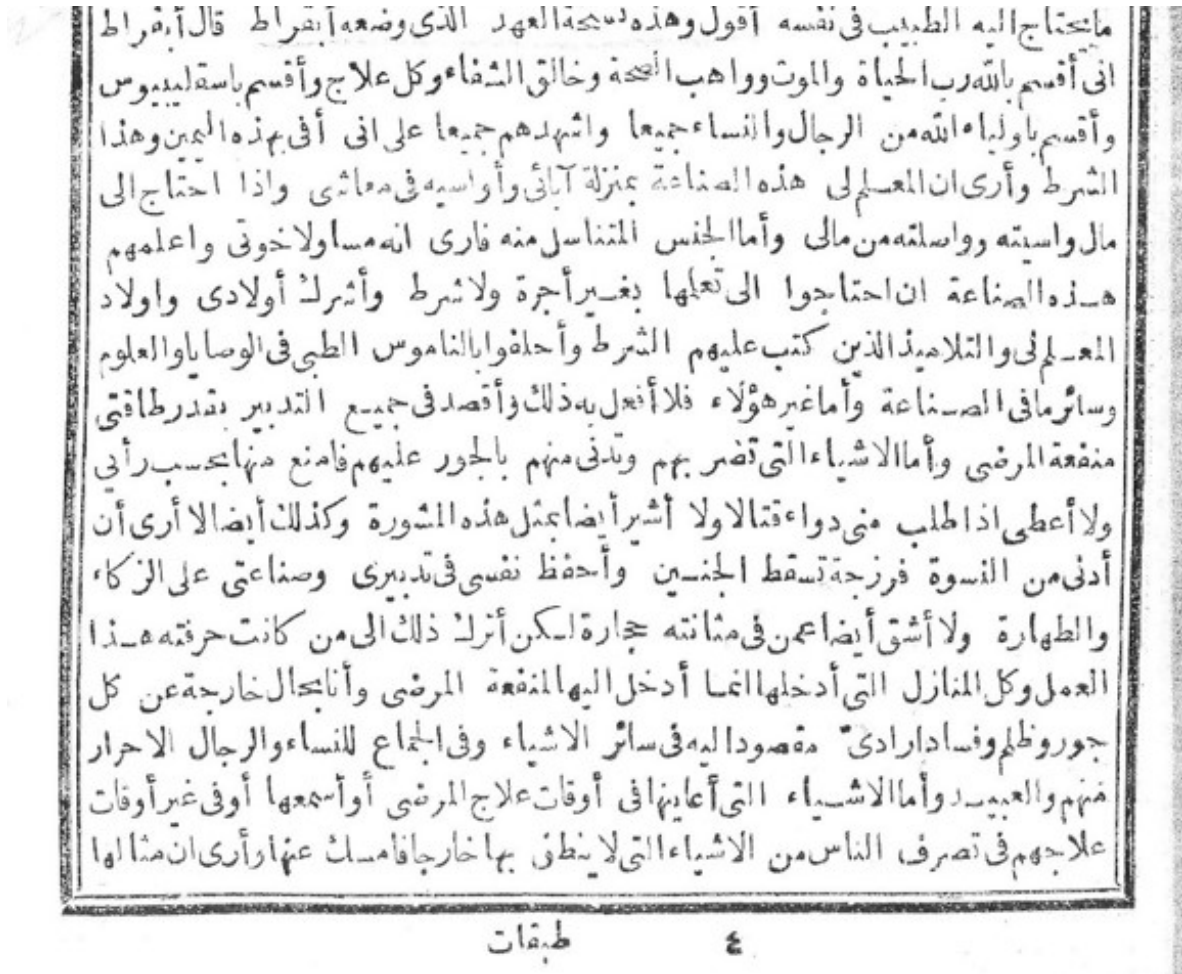 ما يحتاج اليه الطبيب فى نفسه أقول وهذه نسخة العهد الذى وضعه أبقراط قال أبقراط
انى أقسم بالله رب الحياة والموت وواهب الصحة وخالق الشفاء وكل علاج وأقسم باسقليبيوس
وأقسم باولياء الله من الرجال والنساء جميعا واشهدهم جميعا على انى أفى بهذه اليمين وهذا
الشرط وأرى ان المعلم لى هذه الصناعة بمنزلة آبائى وأواسيه فى معاشى واذا احتاج الى
مال واسيته وواصلته من مالى وأما الجنس المتناسل منه فارى انه مساو لاخوتى واعلمهم
هذه الصناعة ان احتاجوا الى تعلمها بغير أجرة ولا شرط وأشرك أولادى واولاد
المعلم لى والتلاميذ الذين كتب عليهم الشرط وأحلفوا بالناموس الطبى فى الوصايا والعلوم
وسائر ما فى الصناعة وأما غير هؤلاء فلا أفعل به ذلك وأقصد فى جميع التدبير بقدر طاقتى
منفعة المرضى وأما الاشياء التى تضر بهم وتدنى منهم بالجور عليهم فامنع منها بحسب رأيى
ولا أعطى اذا طلب منى دواء قتالا ولا أشير أيضا بمثل هذه المشورة وكذلك أيضا لا أرى أن
أدنى من النسوة فرزجة تسقط الجنين وأحفظ نفسى فى تدبيرى وصناعتى على الزكاء
والطهارة ولا أشق أيضا عمن فى مثانته حجارة لكن أترك ذلك الى من كانت حرفته هذا
العمل وكل المنازل التى أدخلها انما أدخل اليها لمنفعة المرضى وأنا بحال خارجة عن كل
جور وظلم وفساد ارادى مقصود اليه فى سائر الاشياء وفى الجماع للنساء والرجال الاحرار
منهم والعبيد وأما الاشياء التى أعاينها فى أوقات علاج المرضى أو أسمعها أو فى غير أوقات
علاجهم فى تصرف الناس من الاشياء التى لا ينطق بها خارجا فامسك عنها وأرى ان مثالها
٤ طبقات